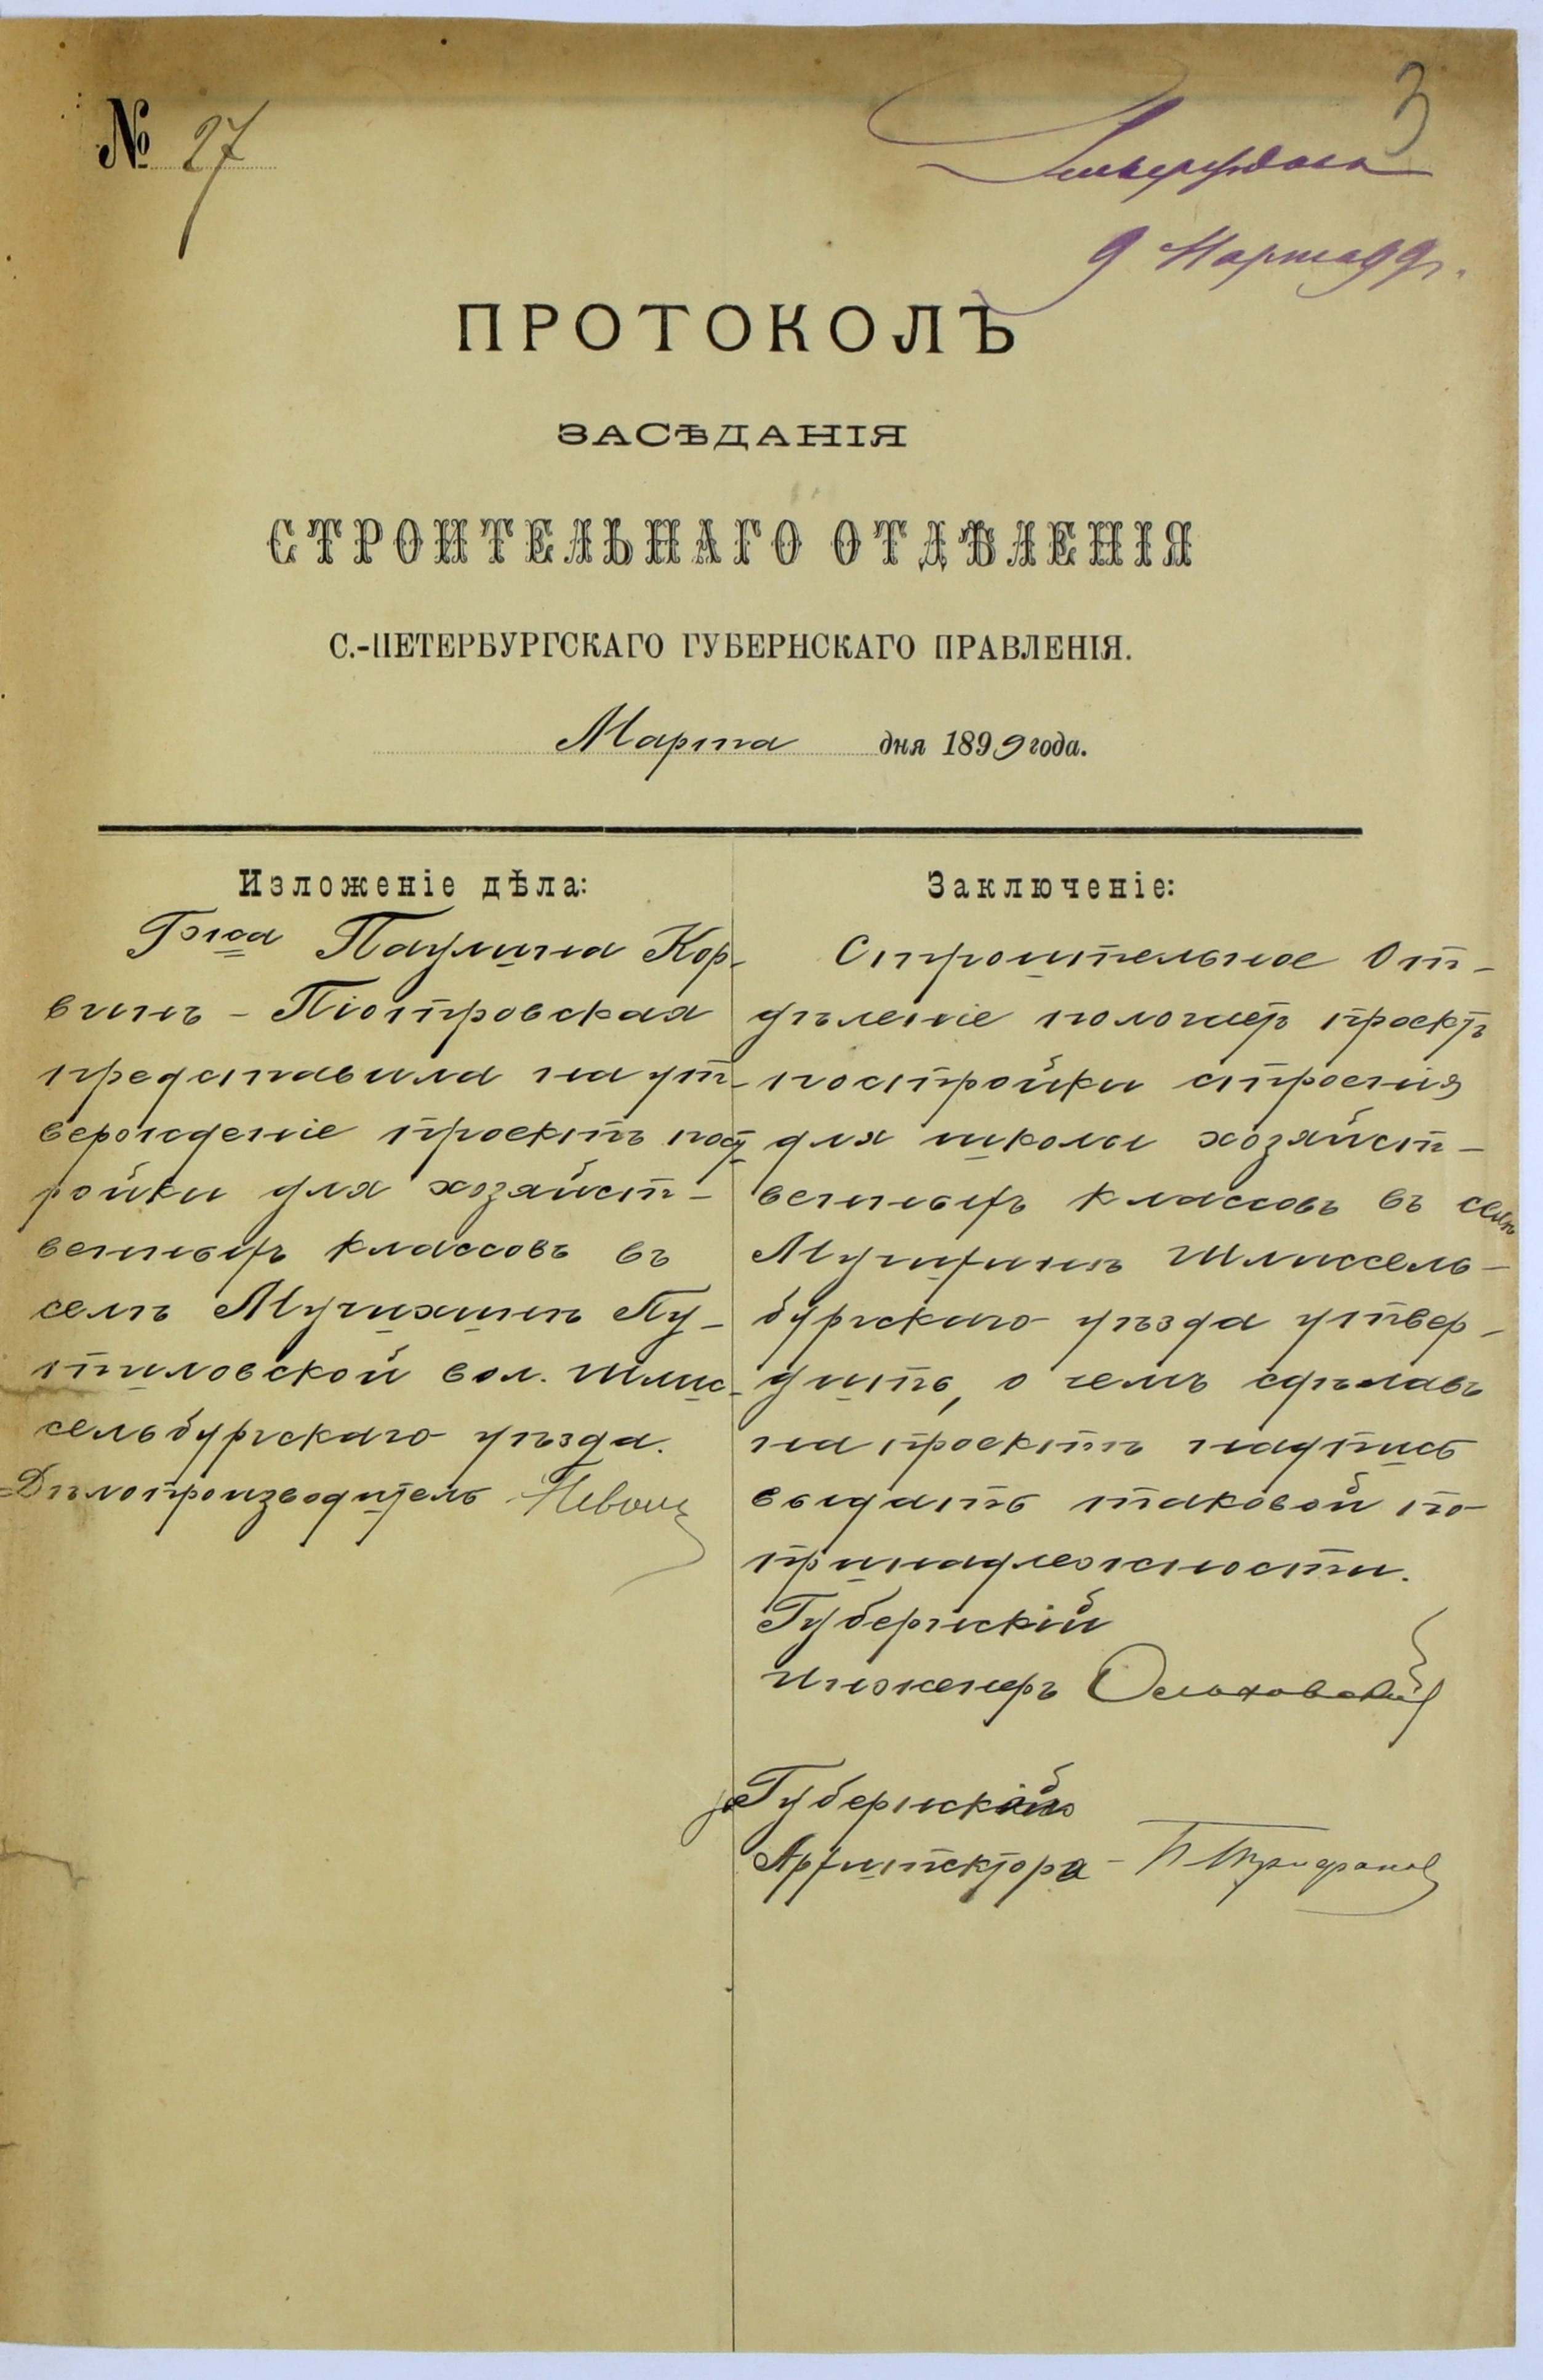 № 27
3
Утверждаю
9 Марта 99 г.
ПРОТОКОЛЪ
ЗАСѢДАНІЯ
СТРОИТЕЛЬНАГО ОТДѢЛЕНІЯ
С.-ПЕТЕРБУРГСКАГО ГУБЕРНСКАГО ПРАВЛЕНІЯ.
Марта дня 1899 года.
Изложеніе дѣла:
Г-жа Паулина Кор-
винъ - Піотровская
представила на ут-
вержденіе проектъ пост
ройки для хозяйст-
венныхъ классовъ въ
селѣ Мучихинѣ Пу-
тиловской вол. Шлис-
сельбургскаго уѣзда.
Дѣлопроизводитель
Заключеніе:
Строительное От-
дѣленіе полагаетъ проектъ
постройки строенія
для школы хозяйст-
венныхъ классовъ въ селѣ
Мучихинѣ Шлиссель-
бургскаго уѣзда утвер-
дить, о чемъ сдѣлавъ
на проектѣ надпись
выдать таковой по
принадлежности.
Губернскій
Инженеръ Ольховскій
за Губернскаго
Архитектора - П Трифанов